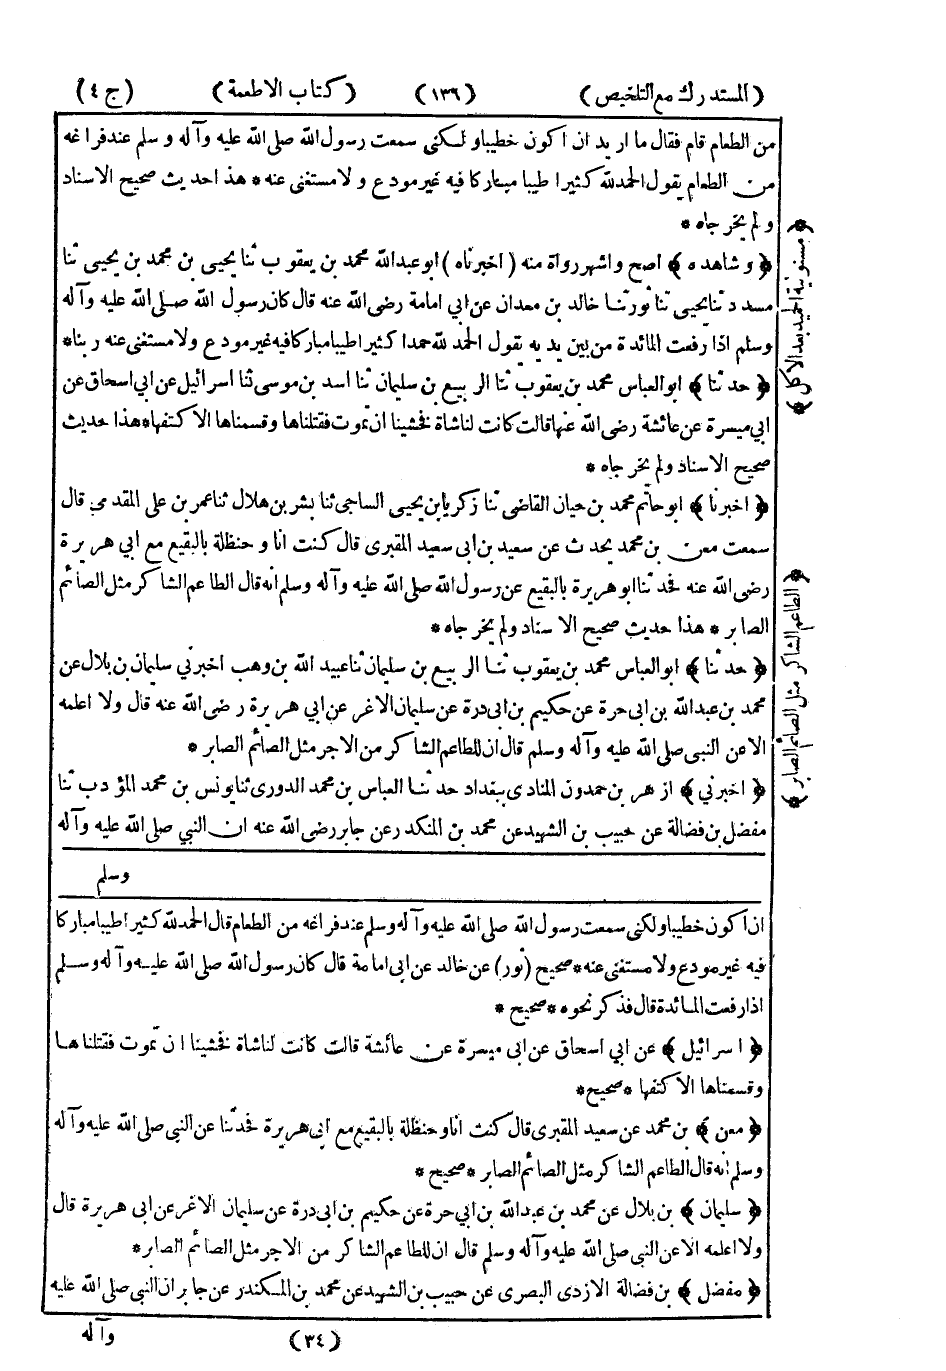 (المستدرك مع التلخيص) (١٣٦) (كتاب الاطعمة) (ج ٤)
من الطعام قام فقال ما اريد ان اكون خطيبا ولكنى سمعت رسول الله صلى الله عليه وآله وسلم عند فراغه
من الطعام يقول الحمد لله كثيرا طيبا مباركا فيه غير مودع ولا مستغنى عنه * هذا حديث صحيح الاسناد
ولم يخرجاه *
﴿ وشاهده ﴾ اصح واشهر رواة منه (اخبرناه) ابو عبدالله محمد بن يعقوب ثنا يحيى بن محمد بن يحيى ثنا
مسدد ثنا يحيى ثنا ثور ثنا خالد بن معدان عن ابي امامة رضى الله عنه قال كان رسول الله صلى الله عليه وآله
وسلم اذا رفعت المائدة من بين يديه يقول الحمد لله حمدا كثيرا طيبا مباركا فيه غير مودع ولا مستغنى عنه ربنا *
﴿ حدثنا ﴾ ابو العباس محمد بن يعقوب ثنا الربيع بن سليمان ثنا اسد بن موسى ثنا اسرائيل عن ابي اسحاق عن
ابي ميسرة عن عائشة رضى الله عنها قالت كانت لنا شاة فخشينا ان تموت فقتلناها وقسمناها الا كتفها * هذا حديث
صحيح الاسناد ولم يخرجاه *
﴿ اخبرنا ﴾ ابو حاتم محمد بن حيان القاضى ثنا زكريا بن يحيى الساجى ثنا بشر بن هلال ثنا عمر بن على المقدمي قال
سمعت معن بن محمد يحدث عن سعيد بن ابى سعيد المقبرى قال كنت انا وحنظلة بالبقيع مع ابي هريرة
رضى الله عنه فحدثنا ابو هريرة بالبقيع عن رسول الله صلى الله عليه وآله وسلم انه قال الطاعم الشاكر مثل الصائم
الصابر * هذا حديث صحيح الاسناد ولم يخرجاه *
﴿ حدثنا ﴾ ابو العباس محمد بن يعقوب ثنا الربيع بن سليمان ثنا عبيد الله بن وهب اخبرني سليمان بن بلال عن
محمد بن عبدالله بن ابى حرة عن حكيم بن ابى درة عن سليمان الاغر عن ابي هريرة رضى الله عنه قال ولا اعلمه
الا عن النبى صلى الله عليه وآله وسلم قال ان للطاعم الشاكر من الاجر مثل الصائم الصابر *
﴿ اخبرني ﴾ ازهر بن حمدون المنادى ببغداد حدثنا العباس بن محمد الدورى ثنا يونس بن محمد المؤدب ثنا
مفضل بن فضالة عن حبيب بن الشهيد عن محمد بن المنكدر عن جابر رضى الله عنه ان النبي صلى الله عليه وآله
وسلم
ان اكون خطيبا ولكنى سمعت رسول الله صلى الله عليه وآله وسلم عند فراغه من الطعام قال الحمد لله كثيرا طيبا مباركا
فيه غير مودع ولا مستغنى عنه * صحيح (ثور) عن خالد عن ابى امامة قال كان رسول الله صلى الله عليه وآله وسلم
اذا رفعت المائدة قال فذكر نحوه * صحيح *
﴿ اسرائيل ﴾ عن ابي اسحاق عن ابى ميسرة عن عائشة قالت كانت لنا شاة فخشينا ان تموت فقتلناها
وقسمناها الا كتفها * صحيح *
﴿ معن ﴾ بن محمد عن سعيد المقبرى قال كنت انا وحنظلة بالبقيع مع ابى هريرة فحدثنا عن النبى صلى الله عليه وآله
وسلم انه قال الطاعم الشاكر مثل الصائم الصابر * صحيح *
﴿ سليمان ﴾ بن بلال عن محمد بن عبدالله بن ابي حرة عن حكيم بن ابى درة عن سليمان الاغر عن ابى هريرة قال
ولا اعلمه الا عن النبى صلى الله عليه وآله وسلم قال ان للطاعم الشاكر من الاجر مثل الصائم الصابر *
﴿ مفضل ﴾ بن فضالة الازدى البصرى عن حبيب بن الشهيد عن محمد بن المنكدر عن جابر ان النبى صلى الله عليه
(٣٤) وآله
﴿ مسنونية الحميد بعد الاكل ﴾
﴿ الطاعم الشاكر مثل الصائم الصابر ﴾